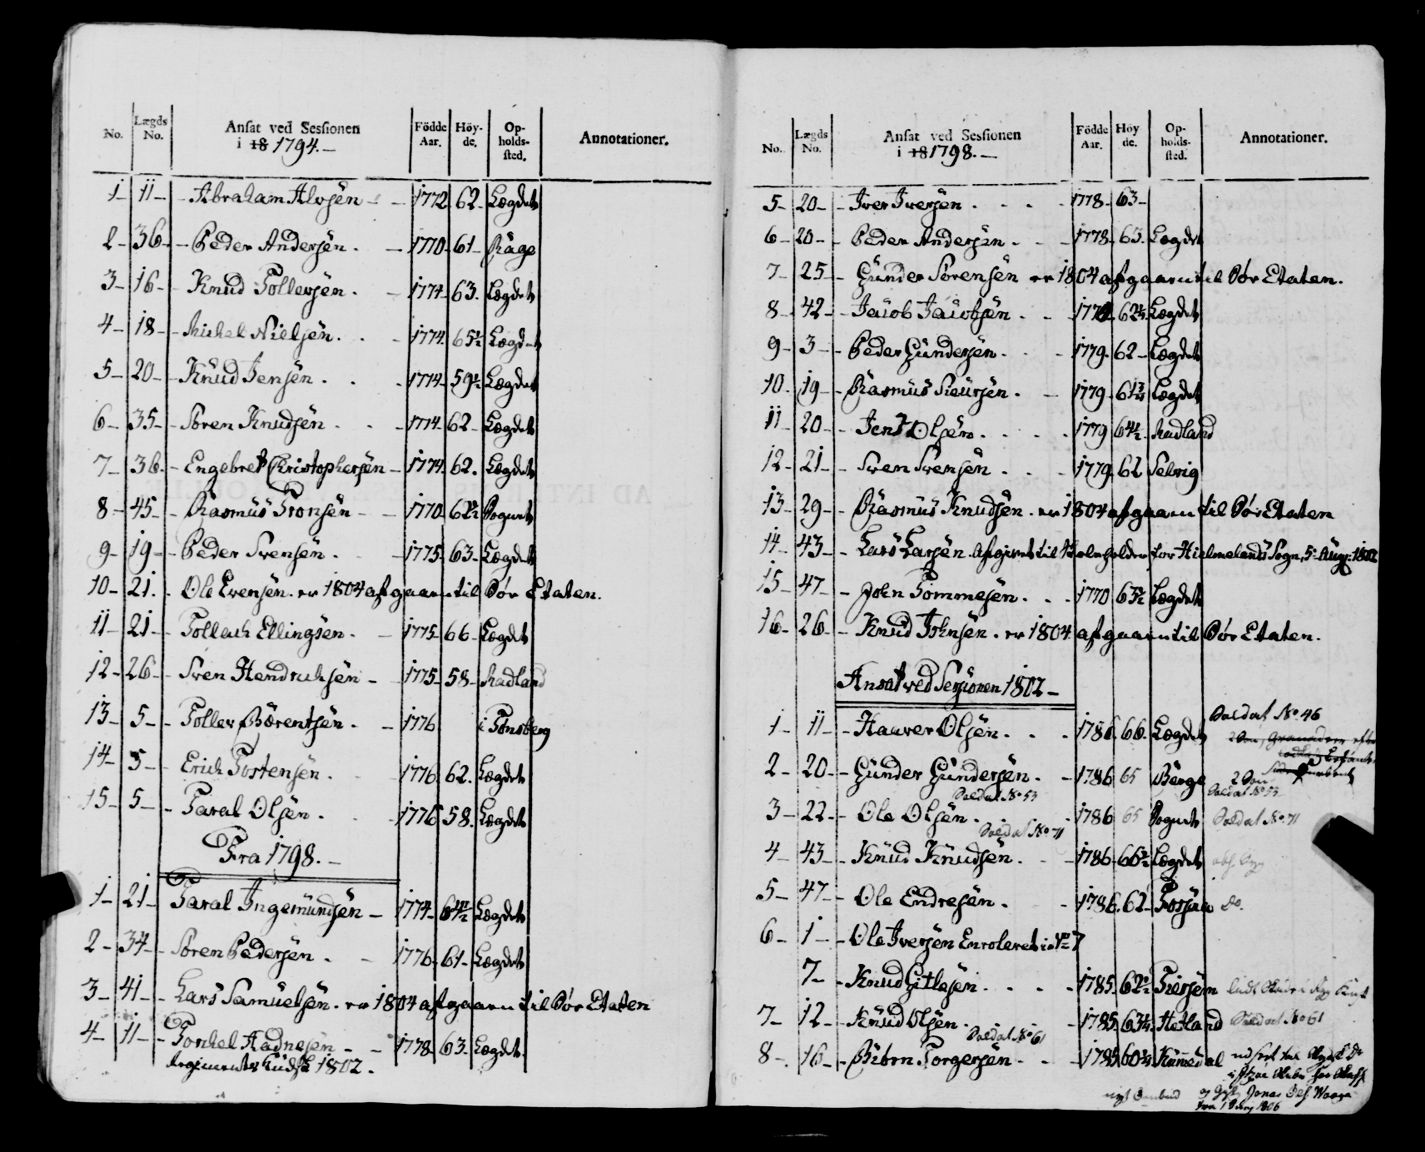 No. Lægds No. Ansat ved Sessionen i 18 1794.— Födde Aar. Höy-de. Op-holds-sted. Annotationer.
1 – 11 – Abraham Alvsen – 1772 62. Lægdet
2 – 36 – Peder Andersen . – 1770 61 – Rage
3 – 16 – Knud Tollersen . – 1774 63. Lægdet
4 – 18 – Michel Nielsen . . – 1774 65½ Lægdet
5 – 20 – Knud Jensen . . – 1774 59½ Lægdet
6 – 35 – Sören Knudsen . . – 1774 62 – Lægdet
7 – 36 – Engebret Christophersen – 1774 62. Lægdet
8 – 45 – Rasmus Tronsen – – 1770 62½
9 – 19 – Peder Svensen . – 1775 63. Lægdet
10 – 21. – Ole Evensen . er 1804 afgaaen til Söe Etaten.
11 – 21 – Tollach Ellingsen . – 1775 66 – Lægdet
12 – 26 – Sven Hendrichsen – – 1775 58 – Madland
13 – 5 – Toller Börentsen . – 1776 i Tönsberg
14 – 5 – Erich Tostensen . 1776 62. Lægdet
15 – 5 – Taral Olsen . – 1776 58. Lægdet
Fra 1798. –
1 – 21 – Taral Ingemundsen – 1774 64½ Lægdet
2 – 34 – Sören Pedersen . – 1776 61 – Lægdet
3 – 41 – Lars Samuelsen . er 1804 afgaaen til Söe Etaten
4 – 11 – Tonkel Aadnesen – – 1778 63. Lægdet.
1802 .
No. Lægds No. Ansat ved Sessionen i 18 1798.— Födde Aar. Höy de. Op-holds-sted. Annotationer.
5 – 20 – Iver Iversen . . . . 1778 63 –
6 – 20 – Peder Andersen . – 1778 63. Lægdet
7 – 25 – Gunder Sörensen er 1804 afgaaen til Söe Etaten.
8 – 42 – Jacob Jacobsen . . 177 62½ Lægdet
9 – 3 – Peder Gundersen . . 1779 62 – Lægdet
10. 19 – Rasmus Siursen . – 1779 61 Lægdet
11 – 20 – Jens Olsen . . . . 1779 64½ Madland
12 – 21 – Sven Svensen . . – 1779 62 Selvig
13 – 29 – Rasmus Knudsen . er 1804 afgaaen til Söe Etaten
14 – 43 – Lars Larsen . Afgivet til for Hielmelands Sogn, 5 Aug: 1802
15 – 47 – John Tommesen . . . 1770 63½ Lægdet
16 – 26 – Knud Johnsen . er 1804 afgaaen til Söe Etaten.
Ansat ved Sessionen 1802 –
1 – 11 – Haaver Olsen . . . 1786 66. Lægdet Soldat No. 46
2 – 20 – Gunder Gundersen . – 1786 65 Börge
Soldat No 53 Soldat No 53
3 – 22 – Ole Olsen . – 1786 65 Soldat No 71
Soldat No 71
4 – 43 – Knud Knudsen . – 1786 66½ Lægdet
5 – 47 – Ole Endresen . – 1786 62 – Fossan do.
6 – 1 – Ole Iversen Enroleret i No 7
7 – Knud Gitlesen . . . 1785 62½
7 – 12 – Knud Olsen . – 1785 63¼ Hetland Soldat No 61
Soldat No 61
8 – 16 – Biörn Torgersen . – 1785 60¾
Jonas Waage
1806